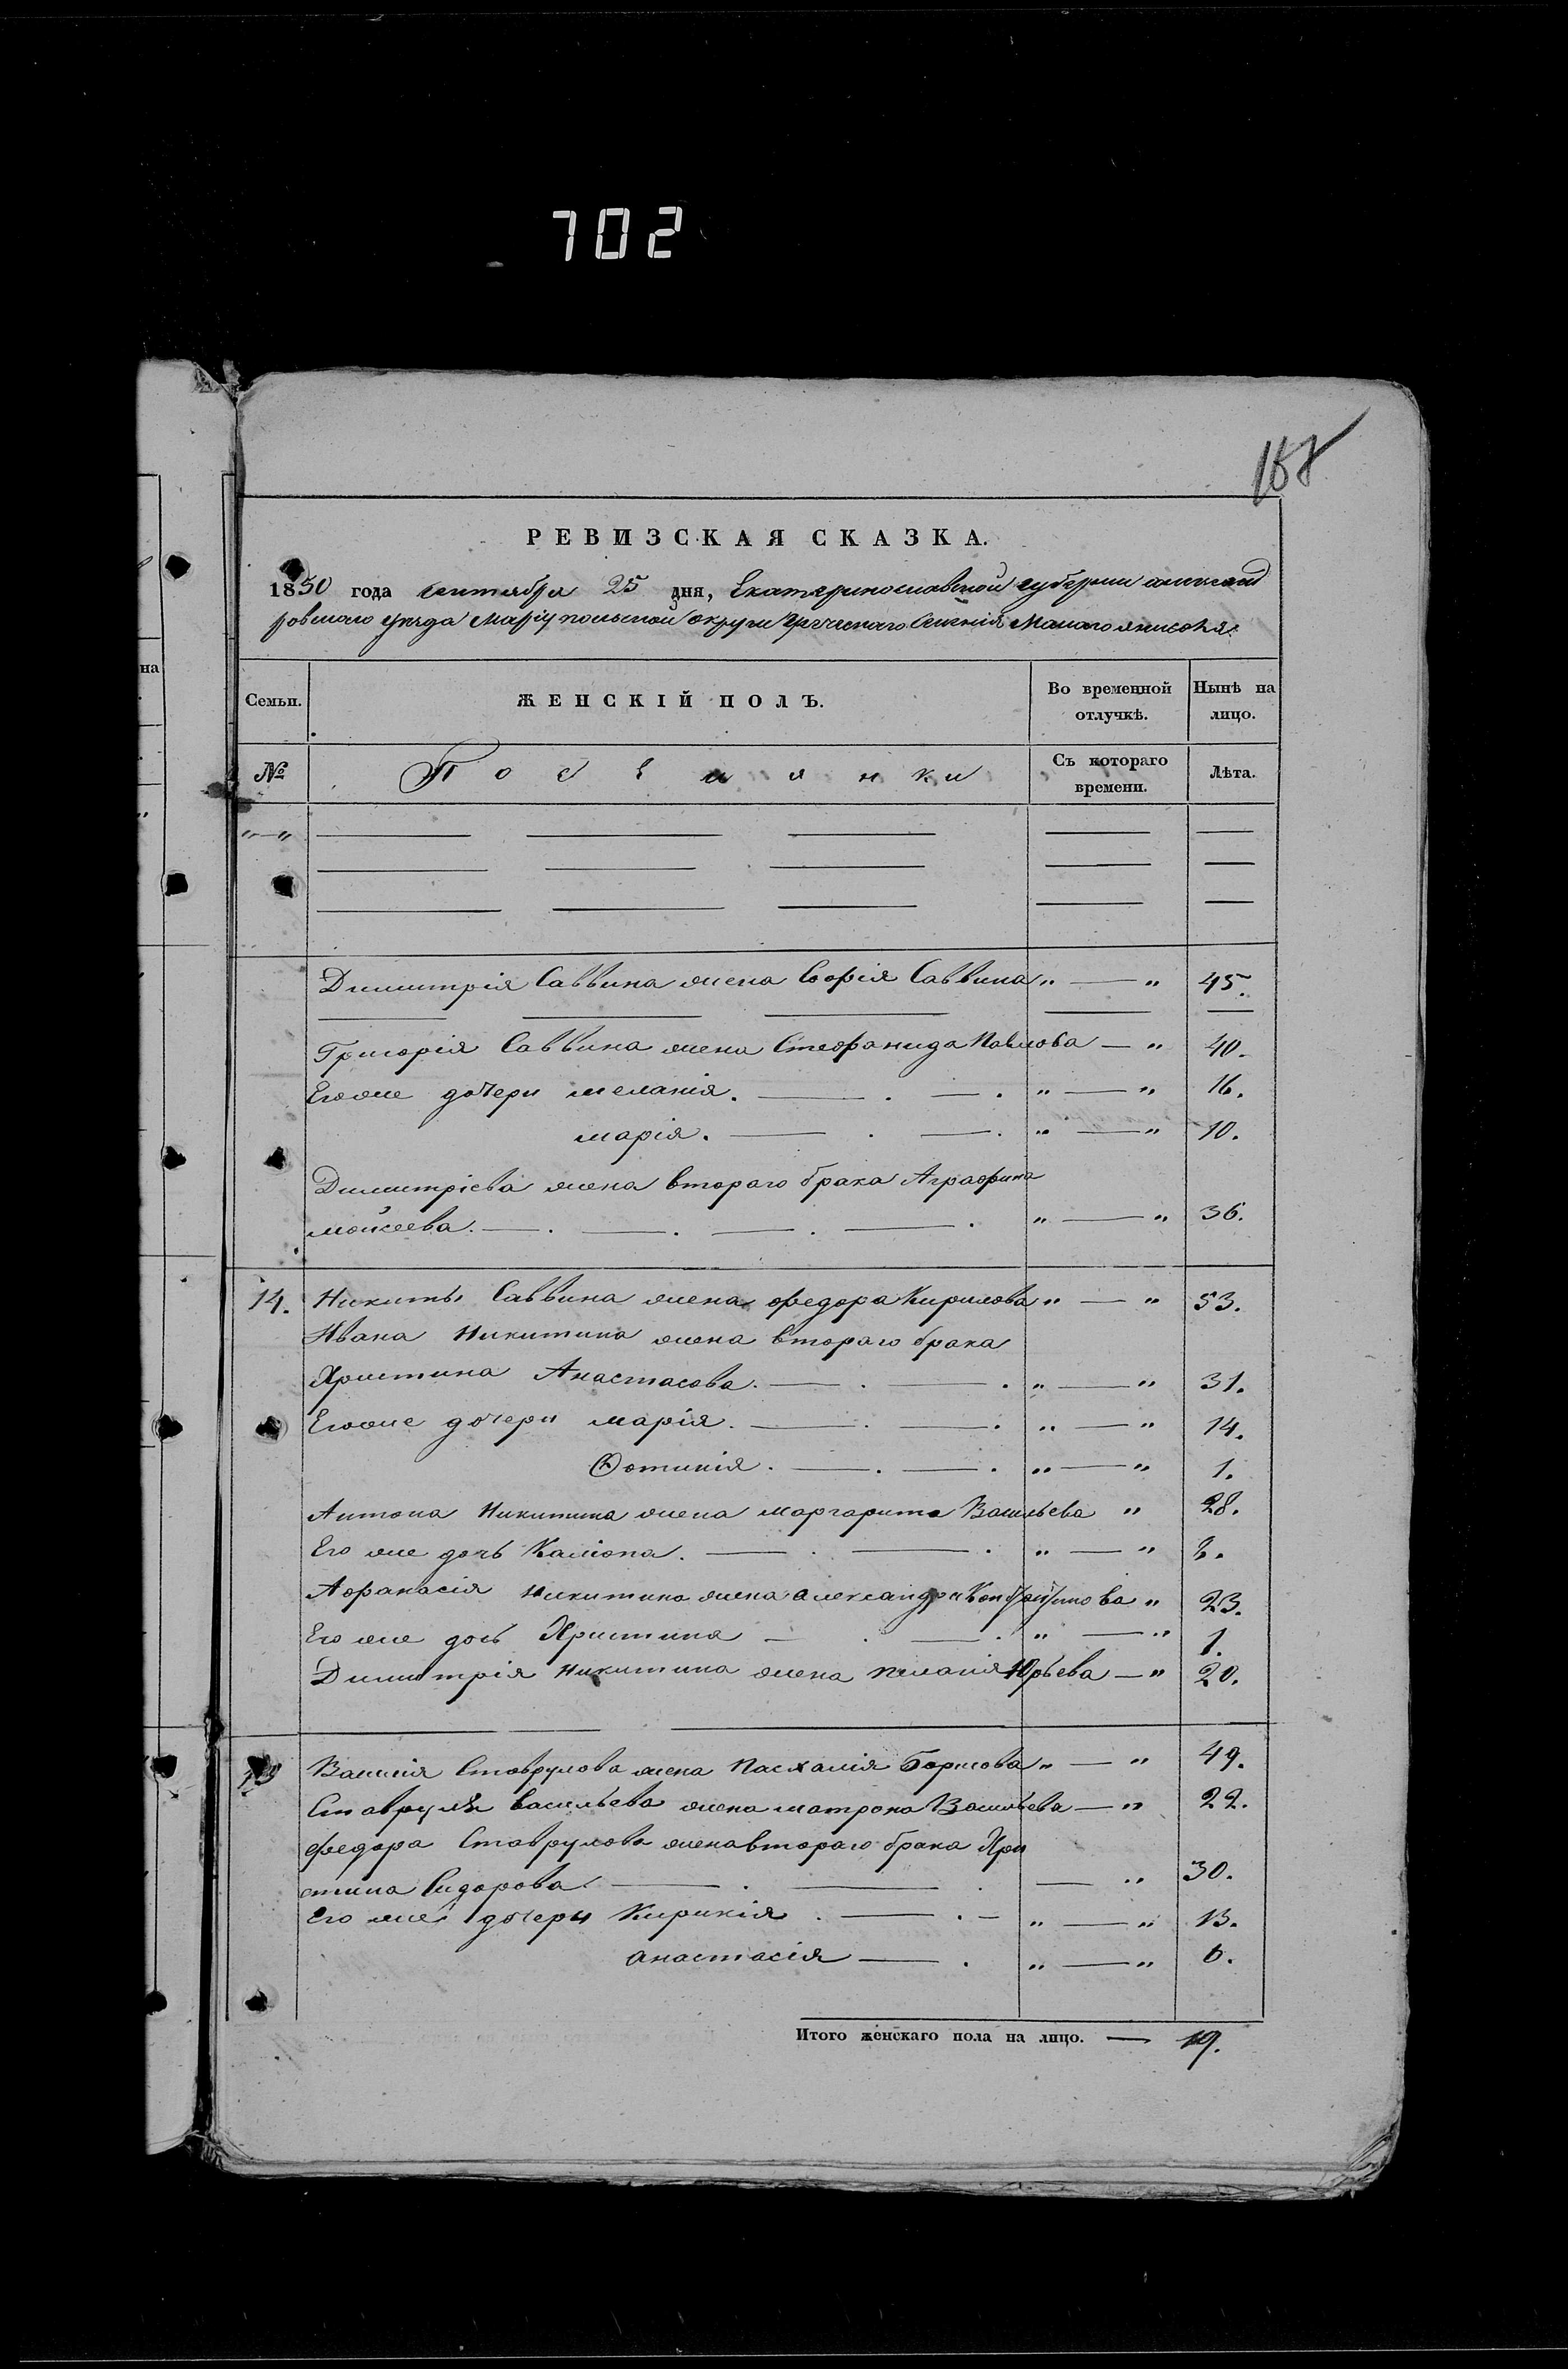 702
158
РЕВИЗСКАЯ СКАЗКА.
1850 года Сентября 25 дня, Екатеринославской губернии александ
ровскаго уѣзда Маріупольской округи Греческаго Селенія Малаго янисоля
на
Семьи. ЖЕНСКІЙ ПОЛЪ. Во временной отлучкѣ. Нынѣ на лицо.
№ Поселянки Съ котораго времени. Лѣта.
" — "
Димитрія Саввина жена Софія Саввина " — " 45.
Григорія Саввина жена Стефанида Павлова — " 40.
Егоже дочери меланія. — . — . " — " 16.
марія. — . — . " — " 10.
Димитріева жена втораго брака Аграфина
мойсеева. — . — . — . — . " — " 36.
14. Никиты Саввина жена федора Кирилова " — " 53.
Ивана Никитина жена втораго брака
Христина Анастасова. — . — . " — " 31.
Егоже дочери марія. — . — . " — " 14.
Фотинія. — . — . " — " 1.
Антона Никитина жена маргарита Васильева " 28.
Его же дочь Каліопа. — . — . " — " 2.
Афанасія Никитина жена александра " 23.
Его же дочь Христина — . — . " — " 1.
Димитрія Никитина жена пелагія Юрьева — " 20.
15 Василія Ставрулова жена Пасхалія Борисова " — " 49.
Ставрула васильева жена матрона Васильева — " 22.
федора Ставрулова жена втораго брака Хри
стина Сидорова — . — . — " 30.
Его же дочери Кирикія . — . — " — " 13.
анастасія — . " — " 6.
Итого женскаго пола на лицо. — 19.